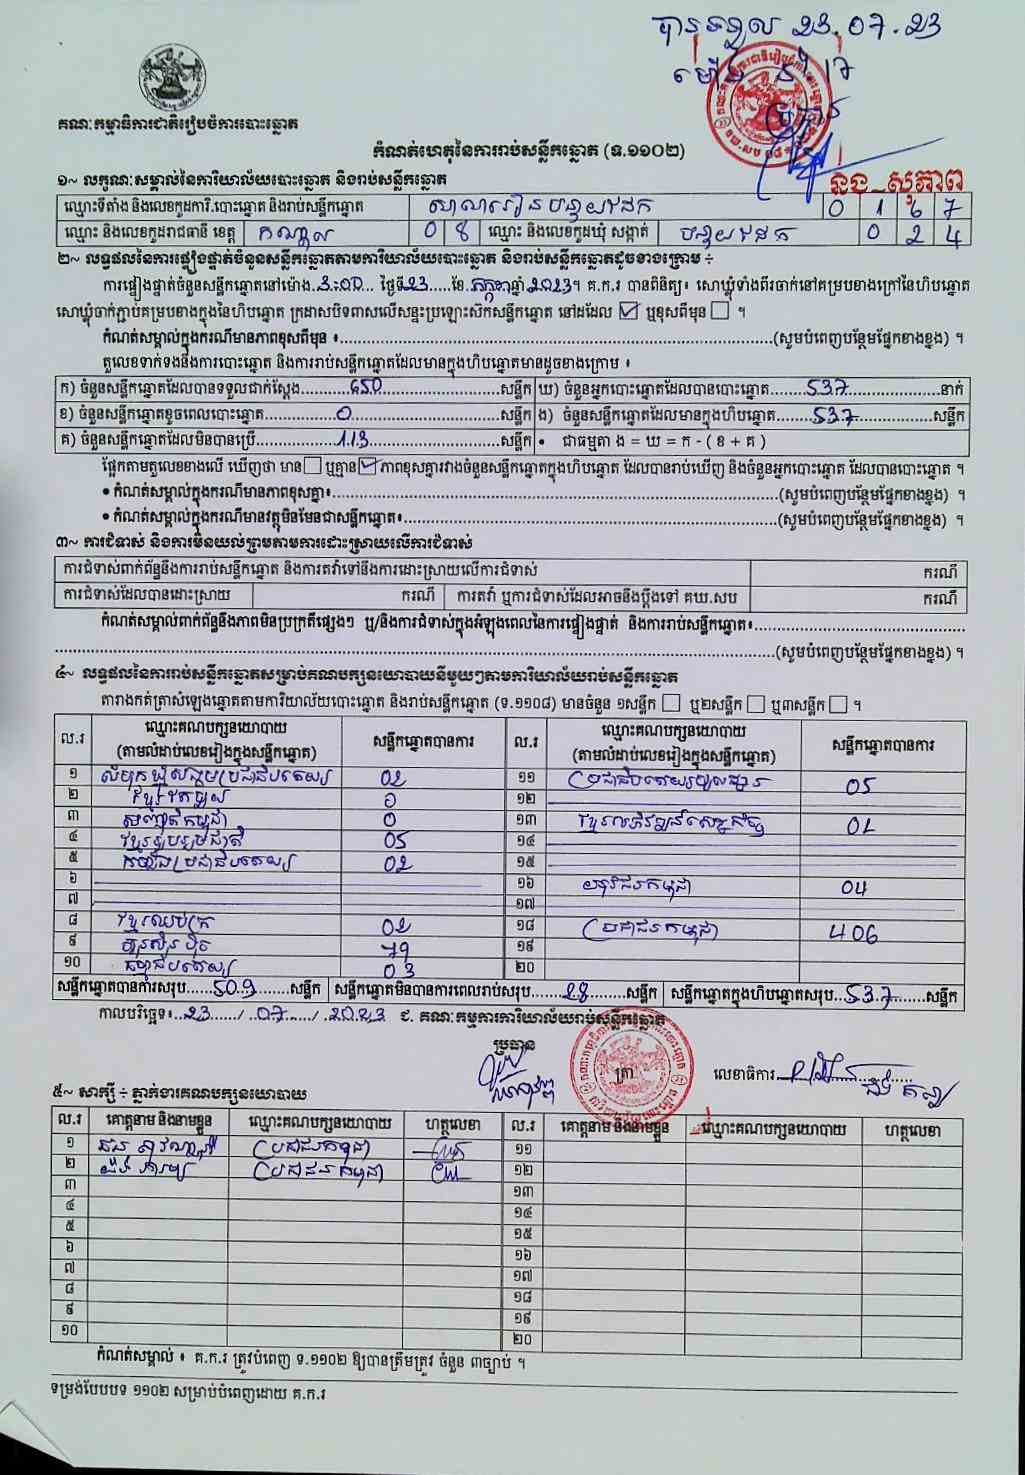 បានទទួល 23.07.23
គណៈកម្មាធិការជាតិរៀបចំការបោះឆ្នោត
កំណត់ហេតុនៃការរាប់សន្លឹកឆ្នោត (ទ.១១០២)
នួន សុភាព
១~ លក្ខណៈសម្គាល់នៃការិយាល័យបោះឆ្នោត និងរាប់សន្លឹកឆ្នោត
ឈ្មោះទីតាំង និងលេខកូដការិ.បោះឆ្នោត និងរាប់សន្លឹកឆ្នោត សាលារៀនបន្ទាយដែក 0 1 6 7
ឈ្មោះ និងលេខកូដរាជធានី ខេត្ត កណ្តាល 0 8 ឈ្មោះ និងលេខកូដឃុំ សង្កាត់ បន្ទាយដែក 0 2 4
២~ លទ្ធផលនៃការផ្ទៀងផ្ទាត់ចំនួនសន្លឹកឆ្នោតតាមការិយាល័យបោះឆ្នោត និងរាប់សន្លឹកឆ្នោតដូចខាងក្រោម ÷
ការផ្ទៀងផ្ទាត់ចំនួនសន្លឹកឆ្នោតនៅម៉ោង.3:00... ថ្ងៃទី23.....ខែ.កក្កដាឆ្នាំ2023។ គ.ក.រ បានពិនិត្យ៖ សោឃ្លុំទាំងពីរចាក់នៅគម្របខាងក្រៅនៃហិបឆ្នោត
សោឃ្លុំចាក់ភ្ជាប់គម្របខាងក្នុងនៃហិបឆ្នោត ក្រដាសបិទពាសលើសន្ទះប្រឡោះស៊កសន្លឹកឆ្នោត នៅដដែល ☑ ឬខុសពីមុន ☐ ។
កំណត់សម្គាល់ក្នុងករណីមានភាពខុសពីមុន ៖...............(សូមបំពេញបន្ថែមផ្នែកខាងខ្នង) ។
តួលេខទាក់ទងនឹងការបោះឆ្នោត និងការរាប់សន្លឹកឆ្នោតដែលមានក្នុងហិបឆ្នោតមានដូចខាងក្រោម ៖
ក) ចំនួនសន្លឹកឆ្នោតដែលបានទទួលជាក់ស្តែង.........650.........សន្លឹក ឃ) ចំនួនអ្នកបោះឆ្នោតដែលបានបោះឆ្នោត.......537.........នាក់
ខ) ចំនួនសន្លឹកឆ្នោតខូចពេលបោះឆ្នោត.........0.........សន្លឹក ង) ចំនួនសន្លឹកឆ្នោតដែលមានក្នុងហិបឆ្នោត.......537.........សន្លឹក
គ) ចំនួនសន្លឹកឆ្នោតដែលមិនបានប្រើ.........113.........សន្លឹក • ជាធម្មតា ង = ឃ = ក - ( ខ + គ )
ផ្អែកតាមតួលេខខាងលើ ឃើញថា មាន☐ ឬគ្មាន☑ ភាពខុសគ្នារវាងចំនួនសន្លឹកឆ្នោតក្នុងហិបឆ្នោត ដែលបានរាប់ឃើញ និងចំនួនអ្នកបោះឆ្នោត ដែលបានបោះឆ្នោត ។
• កំណត់សម្គាល់ក្នុងករណីមានភាពខុសគ្នា៖...............(សូមបំពេញបន្ថែមផ្នែកខាងខ្នង) ។
• កំណត់សម្គាល់ក្នុងករណីមានវត្ថុមិនមែនជាសន្លឹកឆ្នោត៖...............(សូមបំពេញបន្ថែមផ្នែកខាងខ្នង) ។
៣~ ការជំទាស់ និងការមិនយល់ព្រមតាមការដោះស្រាយលើការជំទាស់
ការជំទាស់ពាក់ព័ន្ធនឹងការរាប់សន្លឹកឆ្នោត និងការតវ៉ាទៅនឹងការដោះស្រាយលើការជំទាស់ ករណី
ការជំទាស់ដែលបានដោះស្រាយ ករណី ការតវ៉ា ឬការជំទាស់ដែលអាចនឹងប្តឹងទៅ គឃ.សប ករណី
កំណត់សម្គាល់ពាក់ព័ន្ធនឹងភាពមិនប្រក្រតីផ្សេងៗ ឬ/និងការជំទាស់ក្នុងអំឡុងពេលនៃការផ្ទៀងផ្ទាត់ និងការរាប់សន្លឹកឆ្នោត៖...............
...............(សូមបំពេញបន្ថែមផ្នែកខាងខ្នង) ។
៤~ លទ្ធផលនៃការរាប់សន្លឹកឆ្នោតសម្រាប់គណបក្សនយោបាយនីមួយៗតាមការិយាល័យរាប់សន្លឹកឆ្នោត
តារាងកត់ត្រាសំឡេងឆ្នោតតាមការិយាល័យបោះឆ្នោត និងរាប់សន្លឹកឆ្នោត (ទ.១១០៨) មានចំនួន ១សន្លឹក ☐ ឬ២សន្លឹក ☐ ឬ៣សន្លឹក ☐ ។
ល.រ ឈ្មោះគណបក្សនយោបាយ (តាមលំដាប់លេខរៀងក្នុងសន្លឹកឆ្នោត) សន្លឹកឆ្នោតបានការ ល.រ ឈ្មោះគណបក្សនយោបាយ (តាមលំដាប់លេខរៀងក្នុងសន្លឹកឆ្នោត) សន្លឹកឆ្នោតបានការ
១ សំបុកឃ្មុំសង្គមប្រជាធិបតេយ្យ 02 ១១ ប្រជាធិបតេយ្យមូលដ្ឋាន 05
២ ខ្មែរតែមួយ 0 ១២
៣ សញ្ជាតិកម្ពុជា 0 ១៣ ខ្មែរអភិវឌ្ឍន៍សេដ្ឋកិច្ច 01
៤ ខ្មែររួបរួមជាតិ 05 ១៤
៥ កម្លាំងប្រជាធិបតេយ្យ 02 ១៥
៦ ១៦ យុវជនកម្ពុជា 04
៧ ១៧
៨ ខ្មែរឈប់ក្រ 02 ១៨ ប្រជាជនកម្ពុជា 406
៩ ហ៊្វុនស៊ិនប៉ិច 79 ១៩
១០ ធម្មាធិបតេយ្យ 03 ២០
សន្លឹកឆ្នោតបានការសរុប.....509.......សន្លឹក សន្លឹកឆ្នោតមិនបានការពេលរាប់សរុប.......28.......សន្លឹក សន្លឹកឆ្នោតក្នុងហិបឆ្នោតសរុប..537.......សន្លឹក
កាលបរិច្ឆេទ៖..23...../..07...../..2023 ជ. គណៈកម្មការការិយាល័យរាប់សន្លឹកឆ្នោត
ប្រធាន
ត្រា លេខាធិការ
៥~ សាក្សី ÷ ភ្នាក់ងារគណបក្សនយោបាយ
ល.រ គោត្តនាម និងនាមខ្លួន ឈ្មោះគណបក្សនយោបាយ ហត្ថលេខា ល.រ គោត្តនាម និងនាមខ្លួន ឈ្មោះគណបក្សនយោបាយ ហត្ថលេខា
១ ប្រជាជនកម្ពុជា ១១
២ ប្រជាជនកម្ពុជា ១២
៣ ១៣
៤ ១៤
៥ ១៥
៦ ១៦
៧ ១៧
៨ ១៨
៩ ១៩
១០ ២០
កំណត់សម្គាល់ ៖ គ.ក.រ ត្រូវបំពេញ ទ.១១០២ ឱ្យបានត្រឹមត្រូវ ចំនួន ៣ច្បាប់ ។
ទម្រង់បែបបទ ១១០២ សម្រាប់បំពេញដោយ គ.ក.រ